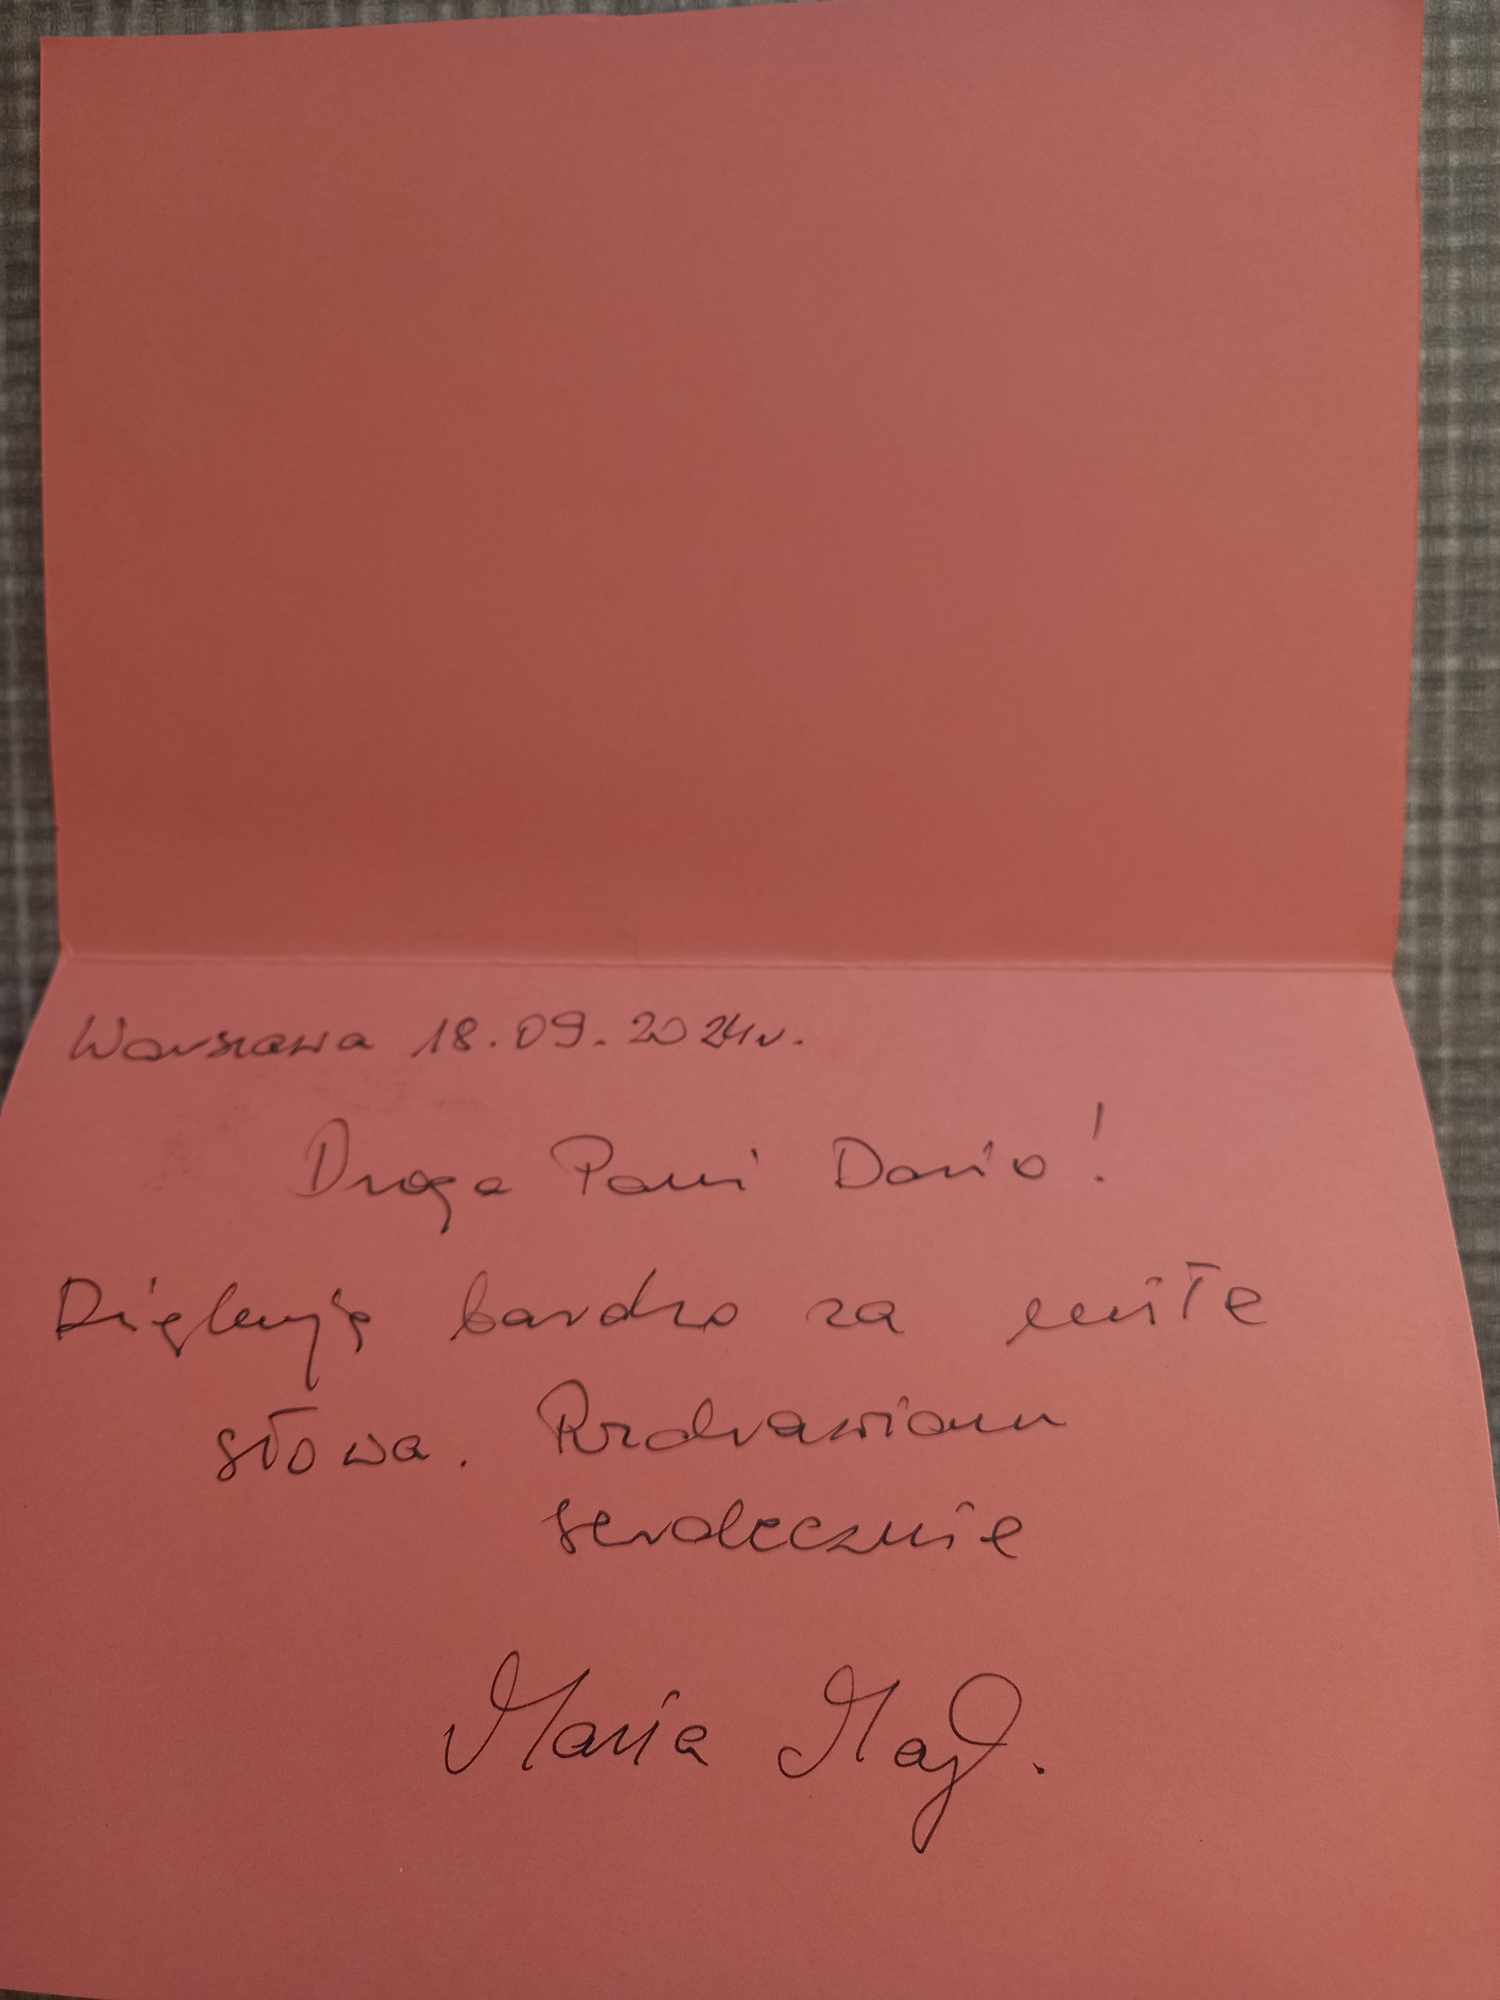 Warszawa 18.09.2024r.
Droga Pani Dario!
Dziękuję bardzo za miłe
słowa. Pozdrawiam
serdecznie
Maria Maj.